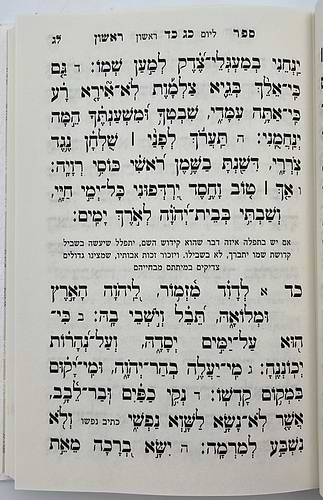 ספר ליום כג כד ראשון ראשון לג
יַנְחֵנִי בְמַעְגְּלֵי־צֶדֶק לְמַעַן שְׁמוֹ׃ ד גַּם
כִּי־אֵלֵךְ בְּגֵיא צַלְמָוֶת לֹא־אִירָא רָע
כִּי־אַתָּה עִמָּדִי, שִׁבְטְךָ וּמִשְׁעַנְתֶּךָ הֵמָּה
יְנַחֲמֻנִי׃ ה תַּעֲרֹךְ לְפָנַי ׀ שֻׁלְחָן נֶגֶד
צֹרְרָי, דִּשַּׁנְתָּ בַשֶּׁמֶן רֹאשִׁי כּוֹסִי רְוָיָה׃
ו אַךְ ׀ טוֹב וָחֶסֶד יִרְדְּפוּנִי כָּל־יְמֵי חַיָּי,
וְשַׁבְתִּי בְּבֵית־יְהוָה לְאֹרֶךְ יָמִים׃
אם יש בתפלה איזה דבר שהוא קידוש השם, יתפלל שיעשה בשביל
קדושת שמו יתברך, לא בשבילו. ויזכור זכות אבותיו, שמצינו גדולים
צדיקים במיתתם מבחייהם
כד א לְדָוִד מִזְמוֹר, לַיהוָה הָאָרֶץ
וּמְלוֹאָהּ, תֵּבֵל וְיֹשְׁבֵי בָהּ׃ ב כִּי־
הוּא עַל־יַמִּים יְסָדָהּ, וְעַל־נְהָרוֹת
יְכוֹנְנֶהָ׃ ג מִי־יַעֲלֶה בְהַר־יְהוָה, וּמִי־יָקוּם
בִּמְקוֹם קָדְשׁוֹ׃ ד נְקִי כַפַּיִם וּבַר־לֵבָב,
אֲשֶׁר לֹא־נָשָׂא לַשָּׁוְא נַפְשִׁי כתיב נפשו וְלֹא
נִשְׁבַּע לְמִרְמָה׃ ה יִשָּׂא בְרָכָה מֵאֵת